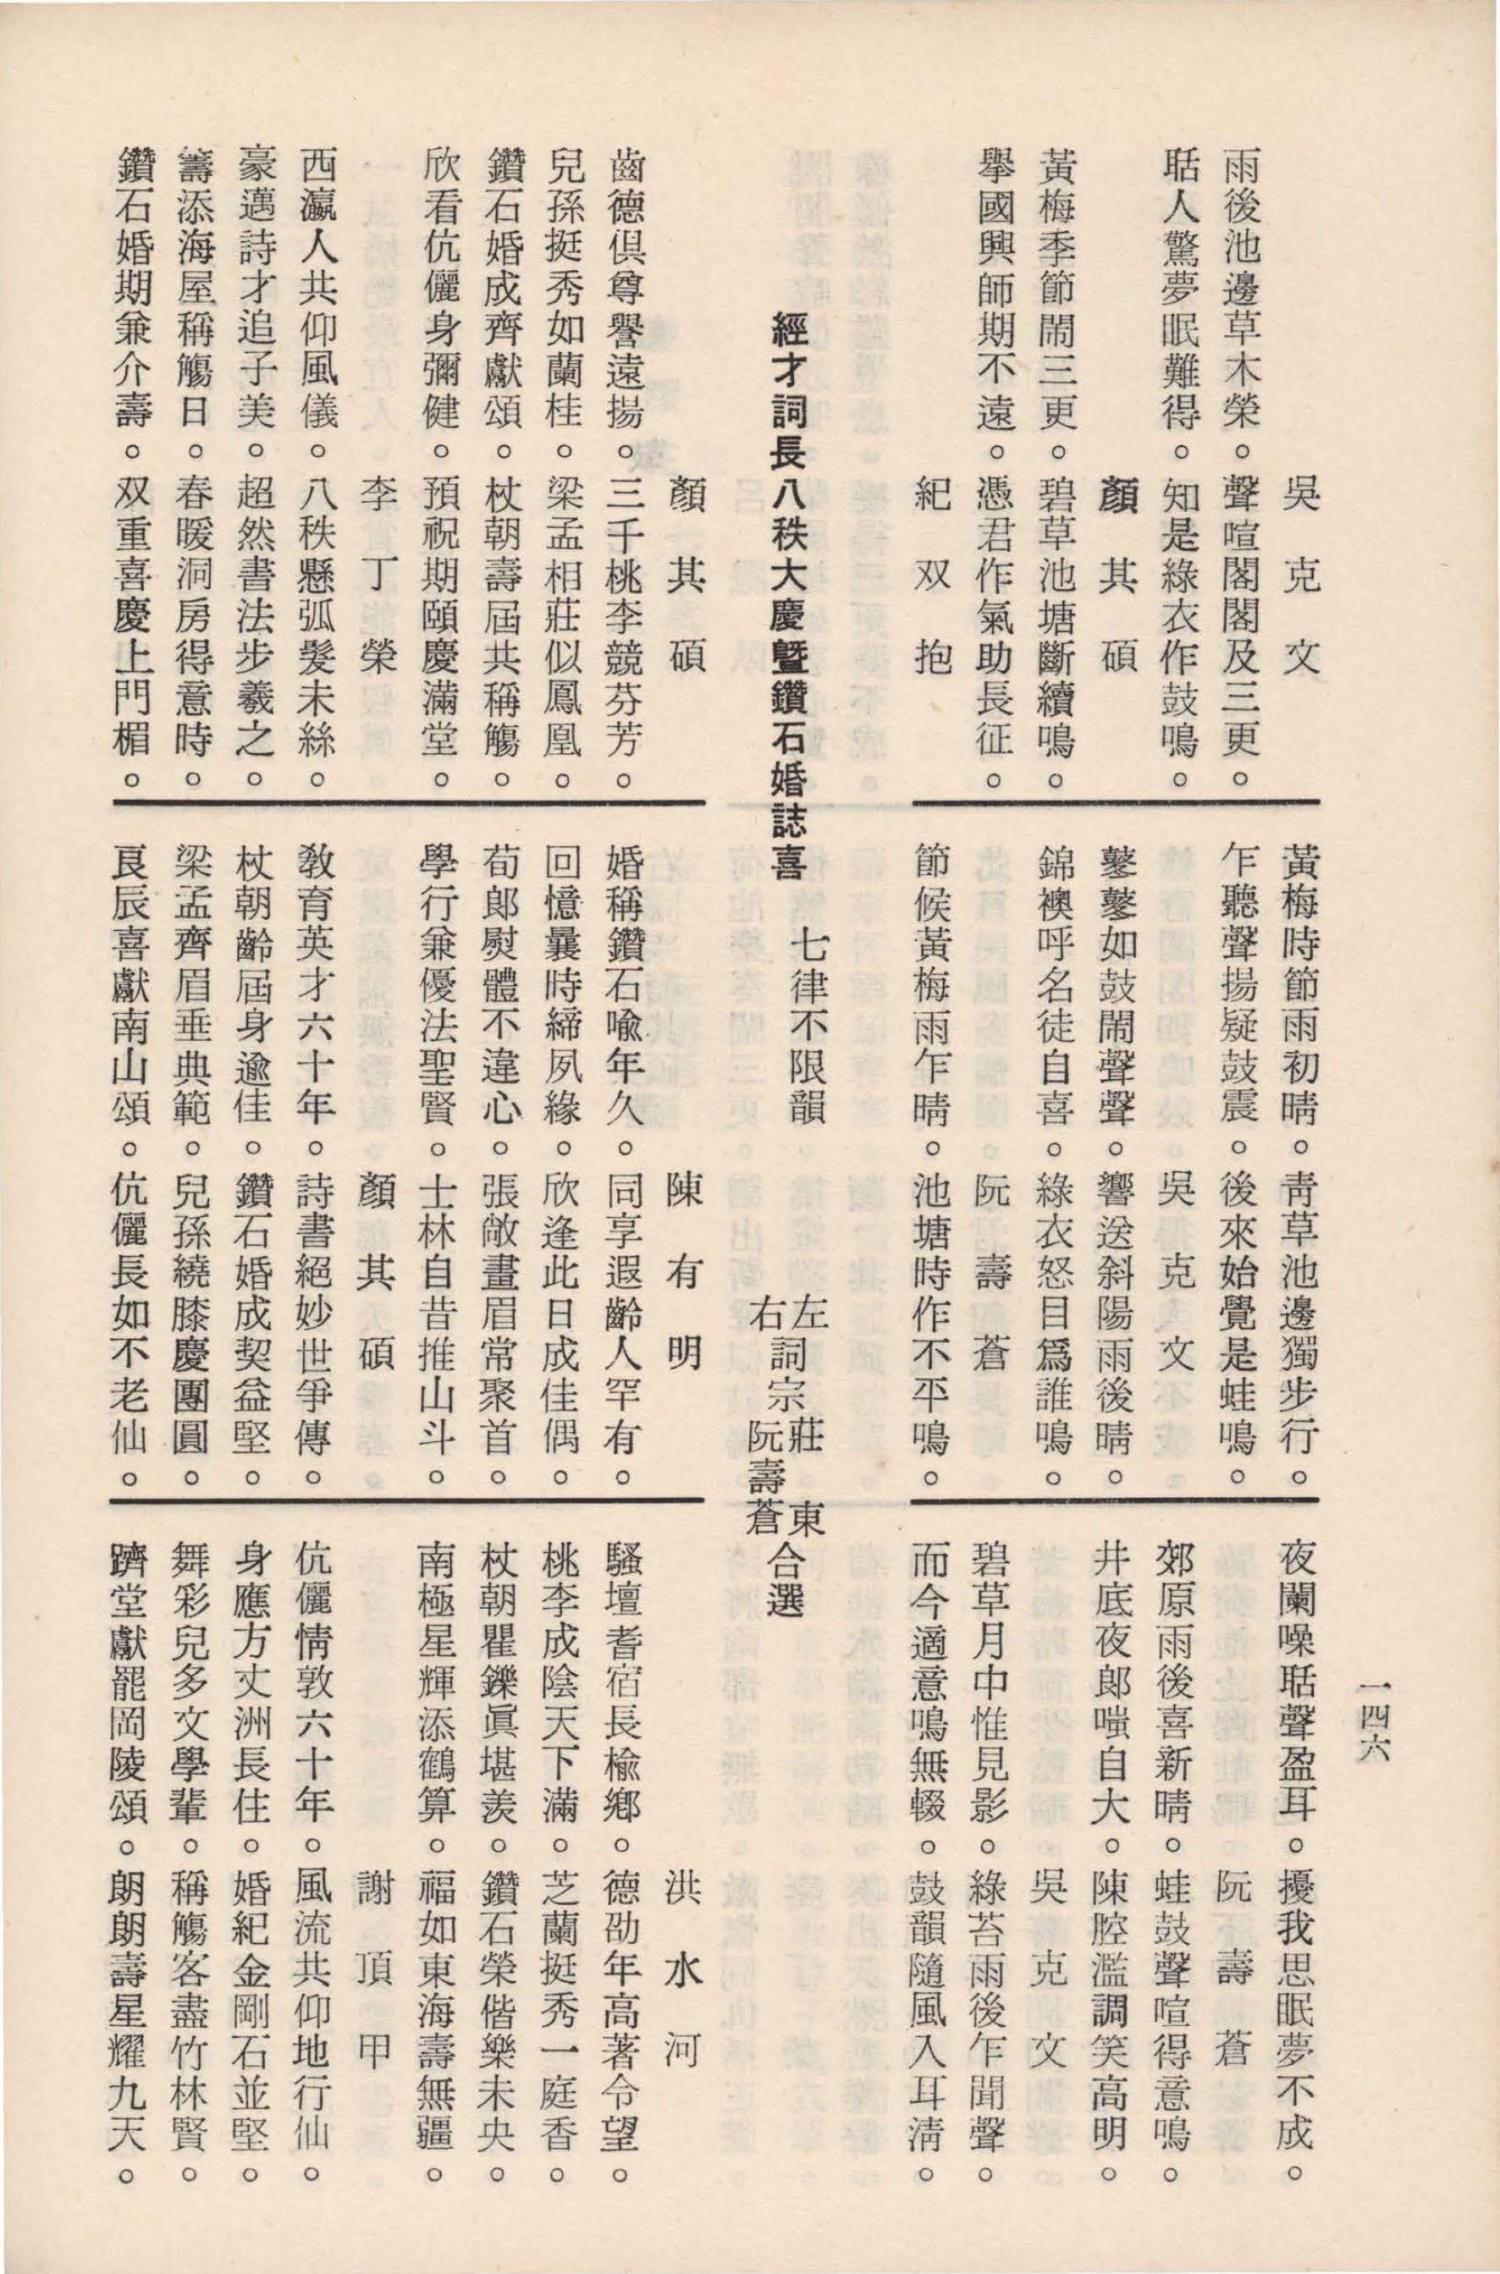 一四六
吳克文
雨後池邊草木榮。聲喧閣閣及三更。
聒人驚夢眠難得。知是綠衣作鼓鳴。
顏其碩
黃梅季節鬧三更。碧草池塘斷續鳴。
舉國興師期不遠。憑君作氣助長征。
紀双抱
黃梅時節雨初晴。靑草池邊獨步行。
乍聽聲揚疑鼓震。後來始覺是蛙鳴。
吳克文
鼕鼕如鼓鬧聲聲。響送斜陽雨後晴。
錦襖呼名徒自喜。綠衣怒目爲誰鳴。
阮壽蒼
節候黃梅雨乍晴。池塘時作不平鳴。
夜闌噪聒聲盈耳。擾我思眠夢不成。
阮壽蒼
郊原雨後喜新晴。蛙鼓聲喧得意鳴。
井底夜郎嗤自大。陳腔濫調笑高明。
吳克文
碧草月中惟見影。綠苔雨後乍聞聲。
而今適意鳴無輟。鼓韻隨風入耳淸。
經才詞長八秩大慶曁鑽石婚誌喜　七律不限韻　左右詞宗莊東阮壽蒼合選
顏其碩
齒德俱尊譽遠揚。三千桃李競芬芳。
兒孫挺秀如蘭桂。梁孟相莊似鳳凰。
鑽石婚成齊獻頌。杖朝壽屆共稱觴。
欣看伉儷身彌健。預祝期頤慶滿堂。
李丁榮
西瀛人共仰風儀。八秩懸弧髮未絲。
豪邁詩才追子美。超然書法步羲之。
籌添海屋稱觴日。春暖洞房得意時。
鑽石婚期兼介壽。双重喜慶上門楣。
陳有明
婚稱鑽石喻年久。同享遐齡人罕有。
回憶曩時締夙緣。欣逢此日成佳偶。
荀郎熨體不違心。張敞畫眉常聚首。
學行兼優法聖賢。士林自昔推山斗。
顏其碩
敎育英才六十年。詩書絕妙世爭傳。
杖朝齡屆身逾佳。鑽石婚成契益堅。
梁孟齊眉垂典範。兒孫繞膝慶團圓。
良辰喜獻南山頌。伉儷長如不老仙。
洪水河
騷壇耆宿長楡鄕。德劭年高著令望。
桃李成陰天下滿。芝蘭挺秀一庭香。
杖朝瞿鑠眞堪羨。鑽石榮偕樂未央。
南極星輝添鶴算。福如東海壽無疆。
謝頂甲
伉儷情敦六十年。風流共仰地行仙。
身應方丈洲長住。婚紀金剛石並堅。
舞彩兒多文學輩。稱觴客盡竹林賢。
躋堂獻罷岡陵頌。朗朗壽星耀九天。